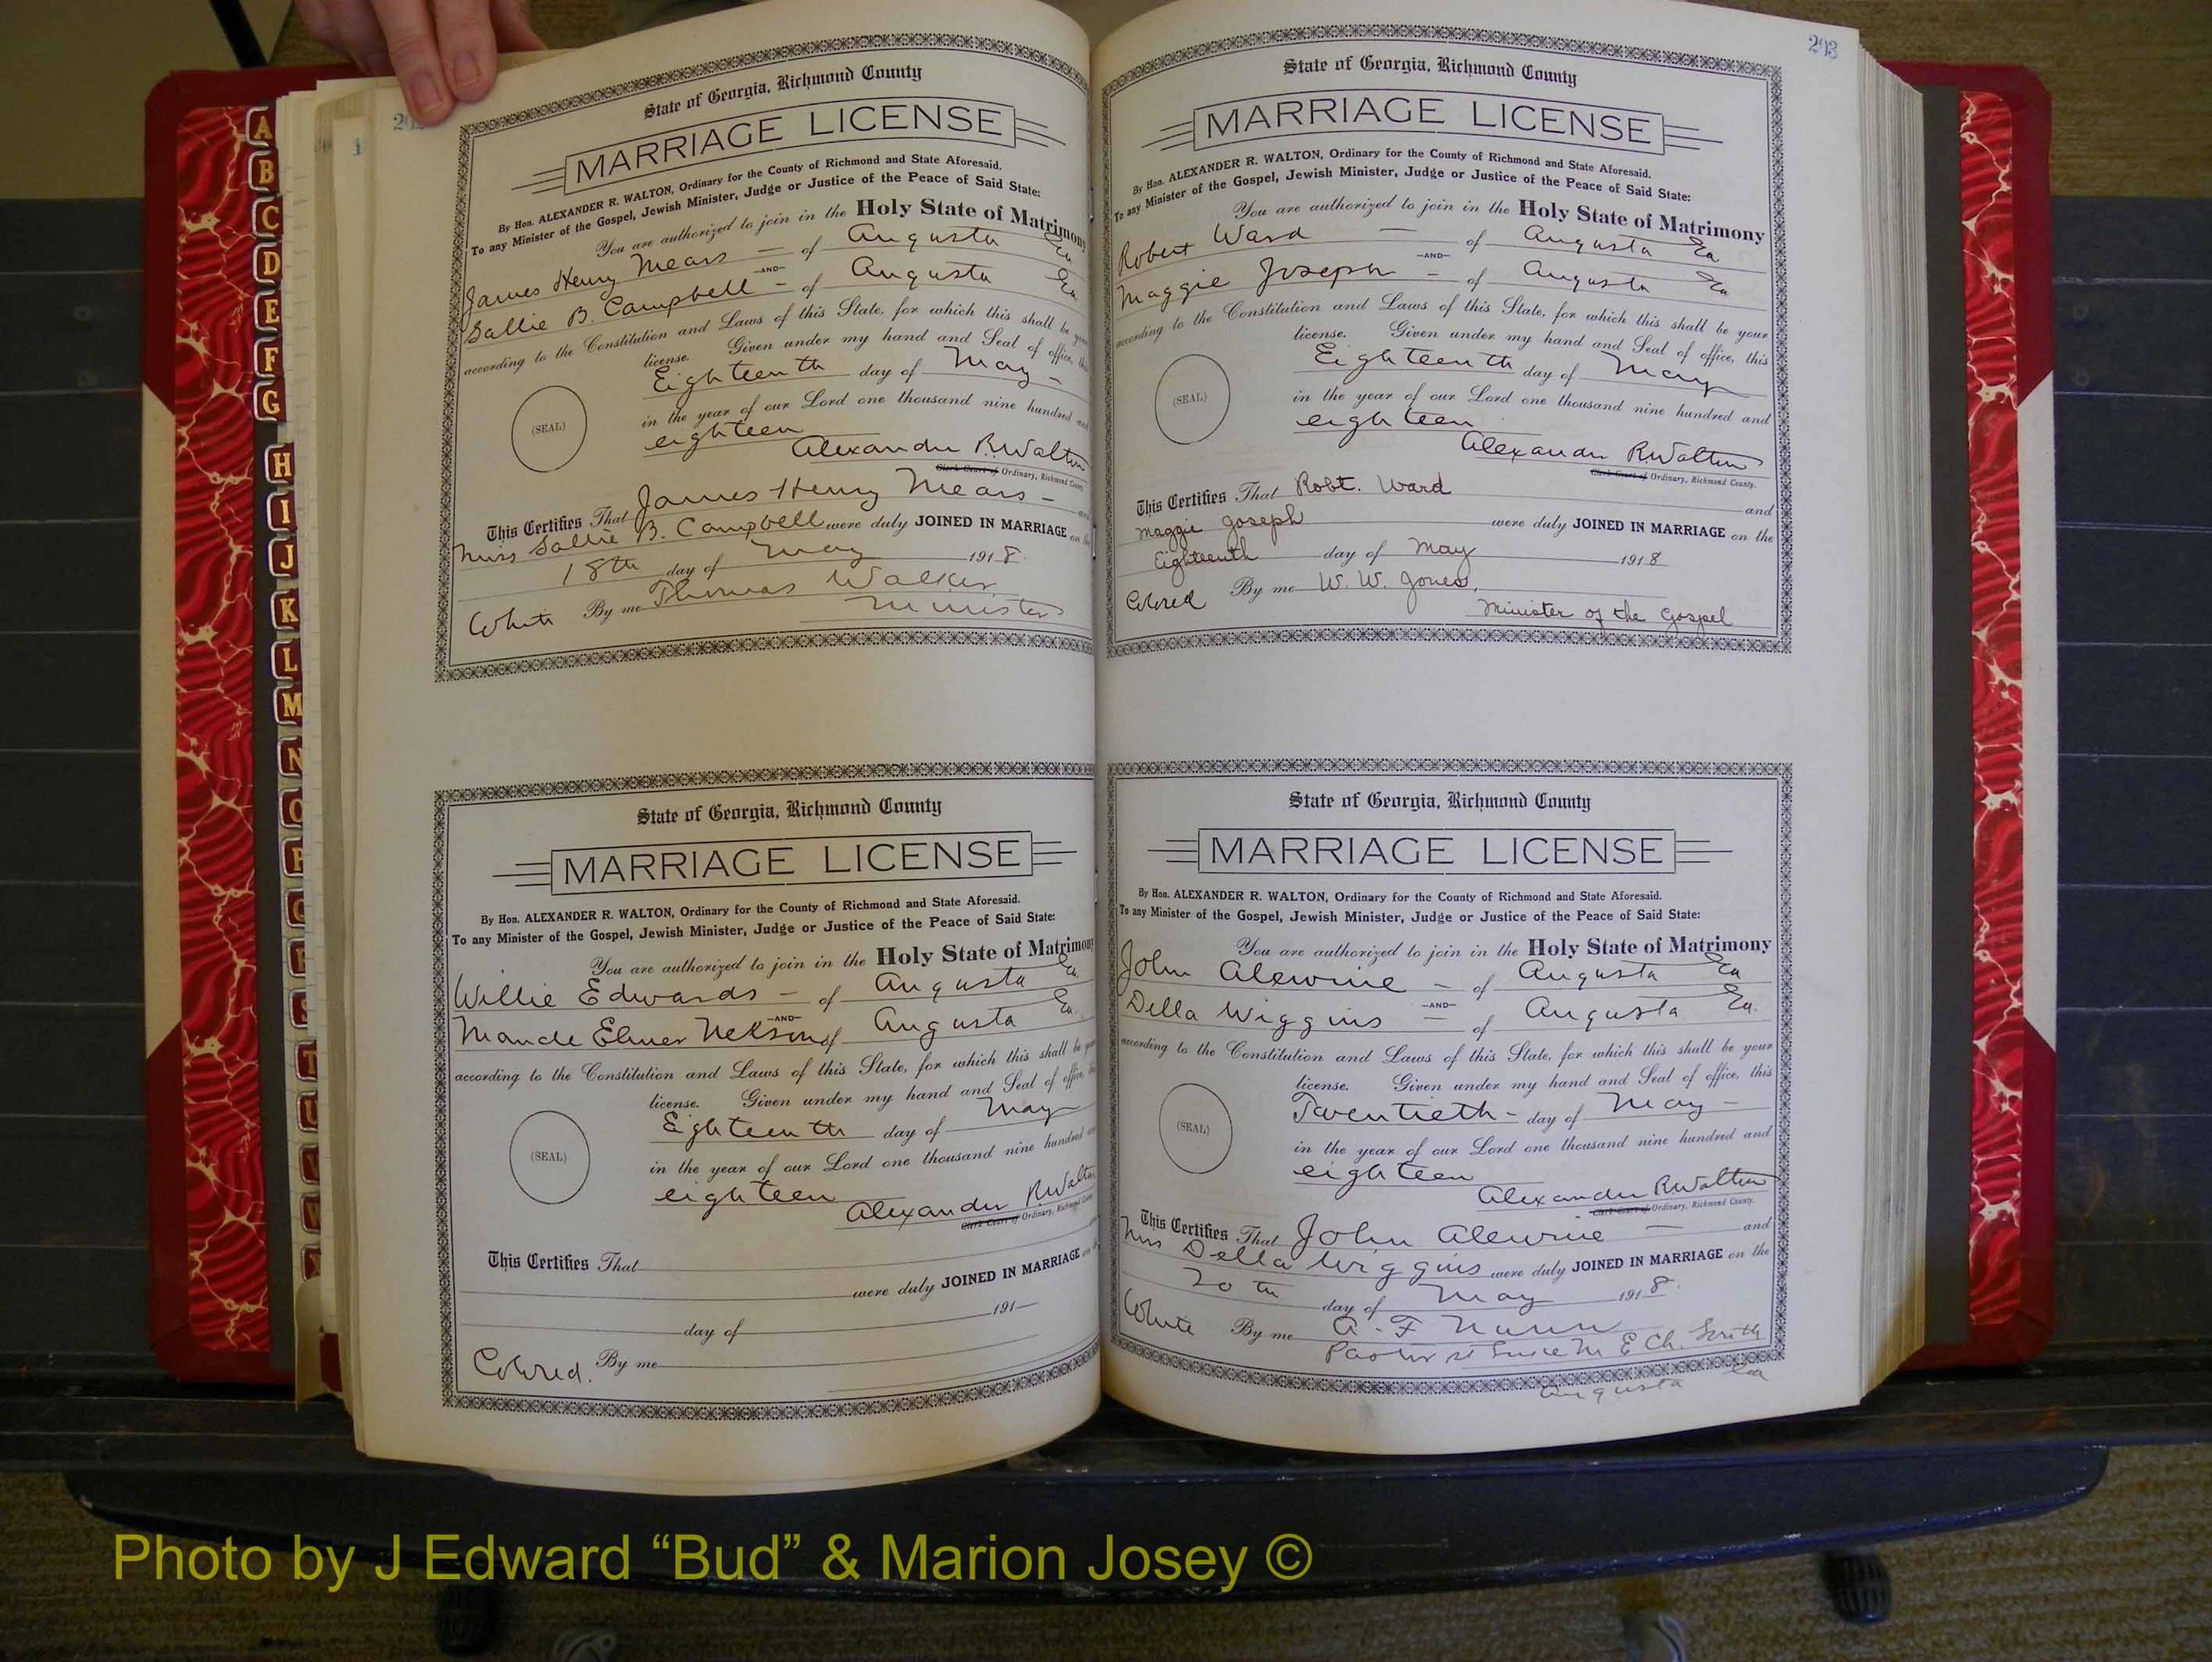 A
B
C
D
E
F
G
H
I
J
K
L
M
N
O
P
Q
R
S
T
U
V
W
State of Georgia, Richmond County
MARRIAGE LICENSE
By Hon. ALEXANDER R. WALTON, Ordinary for the County of Richmond and State Aforesaid.
To any Minister of the Gospel, Jewish Minister, Judge or Justice of the Peace of Said State:
You are authorized to join in the Holy State of Matrimony
James Henry Mears — of Augusta Ga
—AND—
Sallie B. Campbell — of Augusta Ga.
according to the Constitution and Laws of this State, for which this shall be your
license. Given under my hand and Seal of office, this
Eighteenth day of May —
(SEAL)
in the year of our Lord one thousand nine hundred and
eighteen
Alexander R. Walton
Clerk Court of Ordinary, Richmond County.
This Certifies That James Henry Mears — and
Miss Sallie B. Campbell were duly JOINED IN MARRIAGE on the
18th day of May 1918.
White By me Thomas Walker
Minister
State of Georgia, Richmond County
MARRIAGE LICENSE
By Hon. ALEXANDER R. WALTON, Ordinary for the County of Richmond and State Aforesaid.
To any Minister of the Gospel, Jewish Minister, Judge or Justice of the Peace of Said State:
You are authorized to join in the Holy State of Matrimony
Willie Edwards — of Augusta Ga.
—AND—
Maude Elmer Nelson of Augusta Ga.
according to the Constitution and Laws of this State, for which this shall be your
license. Given under my hand and Seal of office, this
Eighteenth day of May
(SEAL)
in the year of our Lord one thousand nine hundred and
eighteen
Alexander R. Walton
Clerk Court of Ordinary, Richmond County.
This Certifies That
were duly JOINED IN MARRIAGE on the
day of 191—
Colored. By me
293
State of Georgia, Richmond County
MARRIAGE LICENSE
By Hon. ALEXANDER R. WALTON, Ordinary for the County of Richmond and State Aforesaid.
To any Minister of the Gospel, Jewish Minister, Judge or Justice of the Peace of Said State:
You are authorized to join in the Holy State of Matrimony
Robert Ward — of Augusta Ga
—AND—
Maggie Joseph — of Augusta Ga
according to the Constitution and Laws of this State, for which this shall be your
license. Given under my hand and Seal of office, this
Eighteenth day of May
(SEAL)
in the year of our Lord one thousand nine hundred and
eighteen
Alexander R. Walton
Clerk Court of Ordinary, Richmond County.
This Certifies That Robt. Ward and
Maggie Joseph were duly JOINED IN MARRIAGE on the
Eighteenth day of May 1918
Colored By me W. W. Jones,
Minister of the Gospel
State of Georgia, Richmond County
MARRIAGE LICENSE
By Hon. ALEXANDER R. WALTON, Ordinary for the County of Richmond and State Aforesaid.
To any Minister of the Gospel, Jewish Minister, Judge or Justice of the Peace of Said State:
You are authorized to join in the Holy State of Matrimony
John Alewine — of Augusta Ga
—AND—
Della Wiggins — of Augusta Ga.
according to the Constitution and Laws of this State, for which this shall be your
license. Given under my hand and Seal of office, this
Twentieth — day of May —
(SEAL)
in the year of our Lord one thousand nine hundred and
eighteen
Alexander R. Walton
Clerk Court of Ordinary, Richmond County.
This Certifies That John Alewine — and
Miss Della Wiggins were duly JOINED IN MARRIAGE on the
20th day of May 1918.
White By me A. F. Nunn
Pastor St Luke M E Ch.
Augusta Ga
Photo by J Edward “Bud” & Marion Josey ©